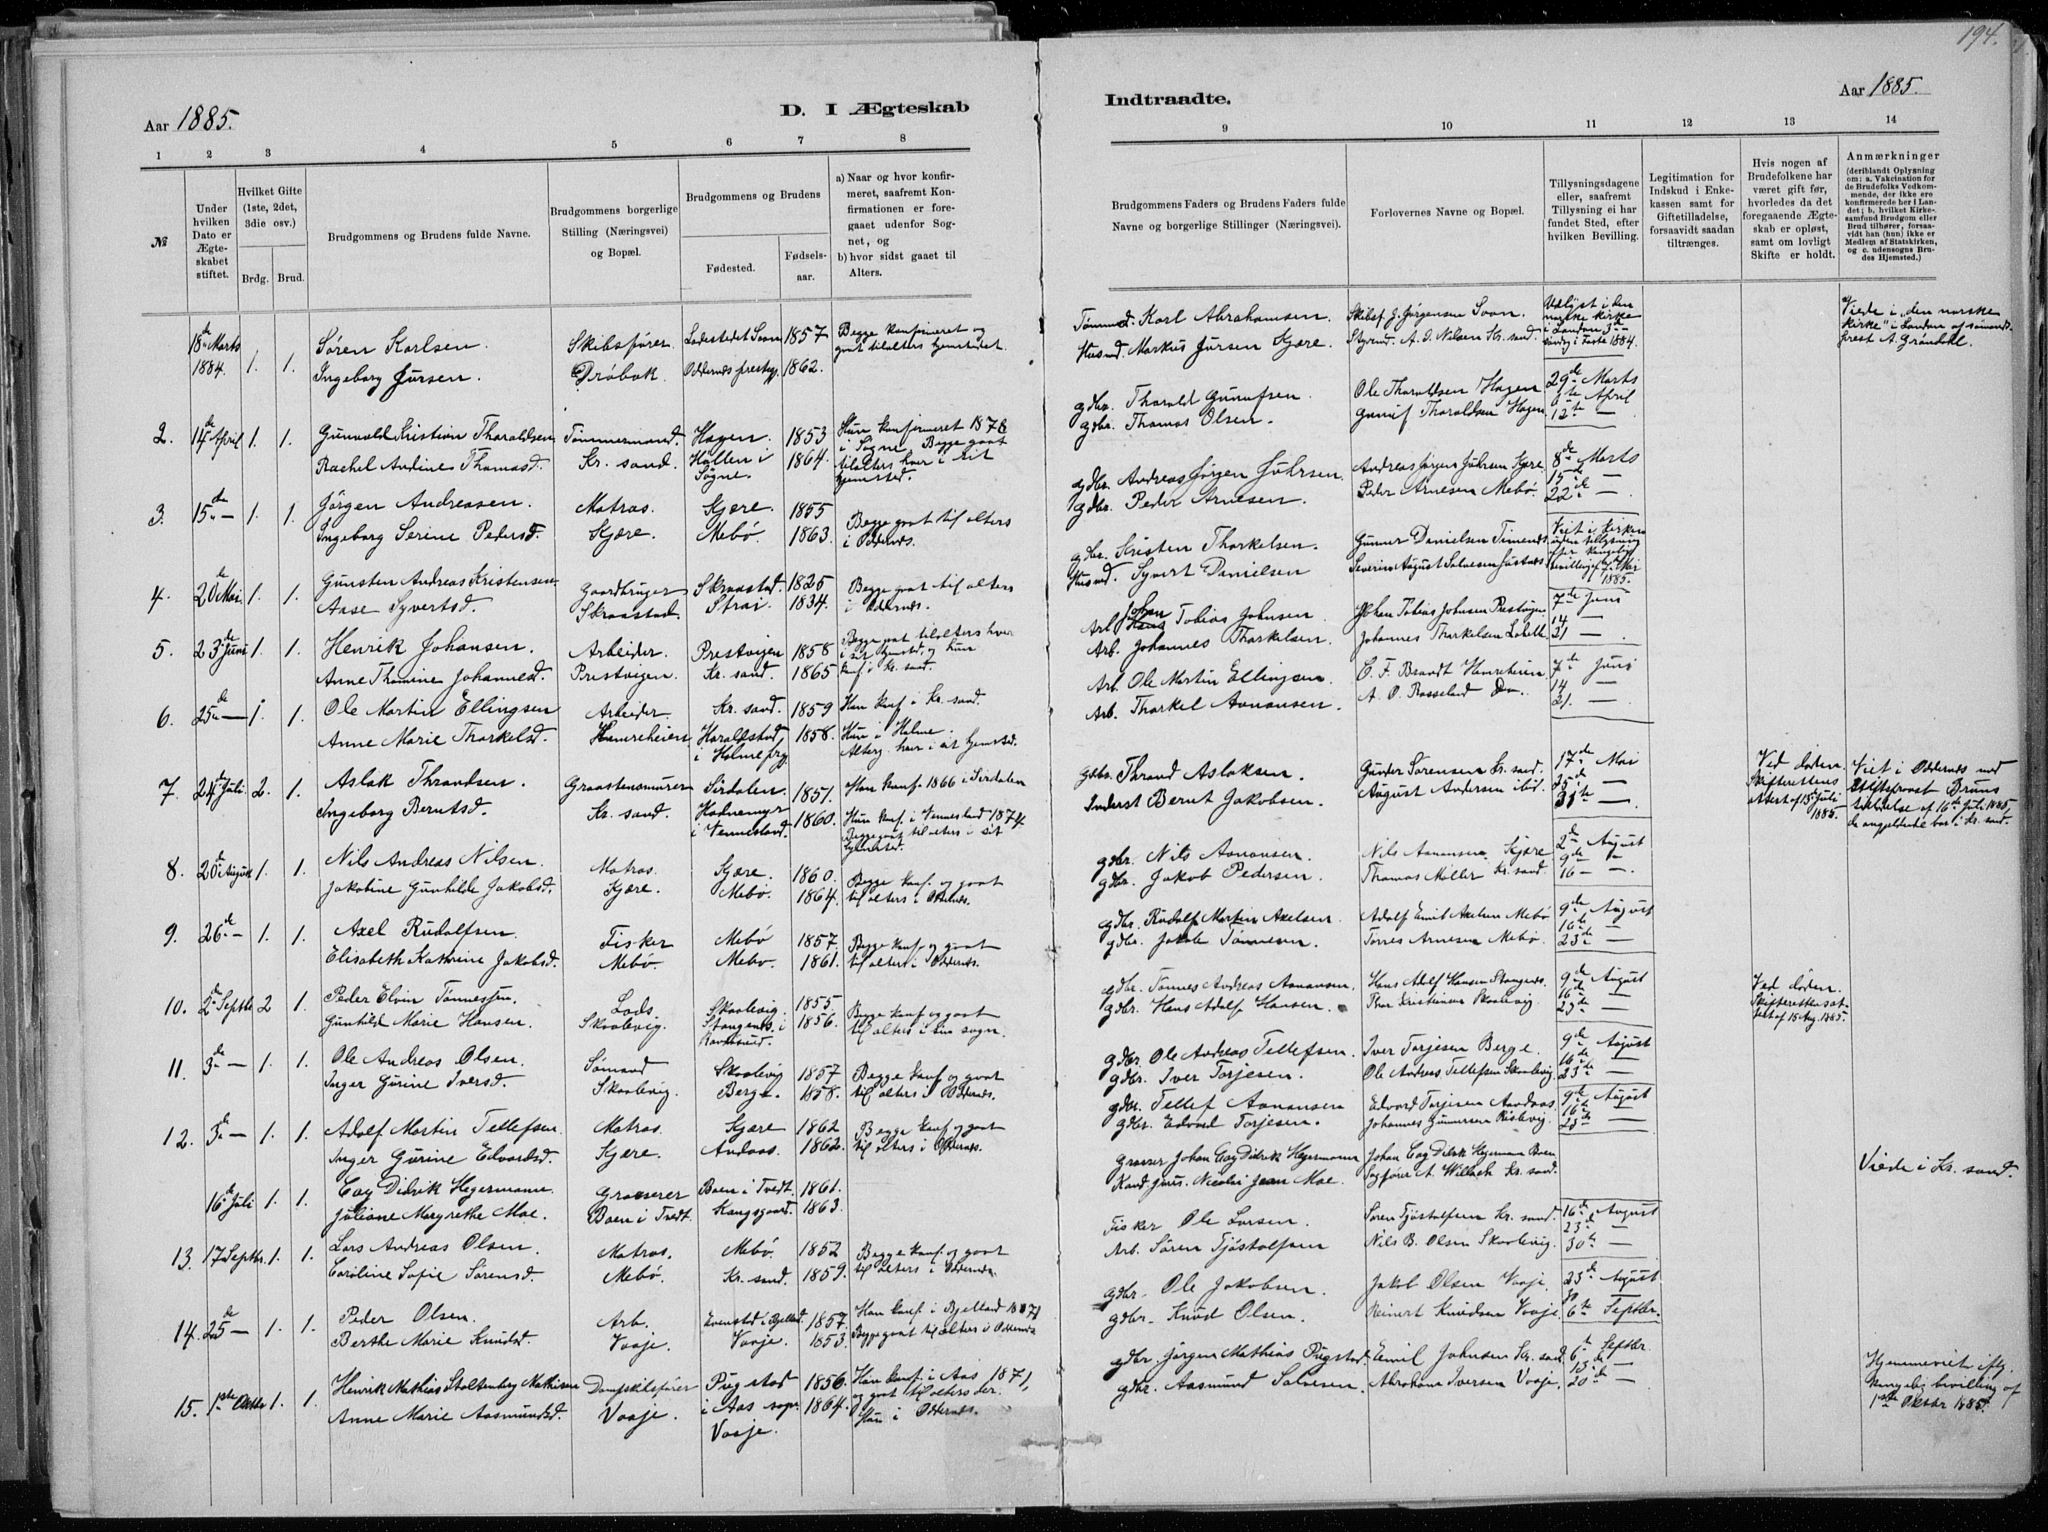 194.
Aar 1885.
D. I Ægteskab
Indtraadte.
Aar 1885.
1 2 3 4 5 6 7 8
9 10 11 12 13 14
№
Under hvilken Dato er Ægteskabet stiftet.
Hvilket Gifte (1ste, 2det, 3die osv.)
Brdg. Brud.
Brudgommens og Brudens fulde Navne.
Brudgommens borgerlige Stilling (Næringsvei) og Bopæl.
Brudgommens og Brudens
Fødested.
Fødselsaar.
a) Naar og hvor konfirmeret, saafremt Konfirmationen er foregaaet udenfor Sognet, og
b) hvor sidst gaaet til Alters.
Brudgommens Faders og Brudens Faders fulde Navne og borgerlige Stillinger (Næringsvei).
Forlovernes Navne og Bopæl.
Tillysningsdagene eller, saafremt Tillysning ei har fundet Sted, efter hvilken Bevilling.
Legitimation for Indskud i Enkekassen samt for Giftetilladelse, forsaavidt saadan tiltrænges.
Hvis nogen af Brudefolkene har været gift før, hvorledes da det foregaaende Ægteskab er opløst, samt om lovligt Skifte er holdt.
Anmærkninger (deriblandt Oplysning om: a. Vakcination for de Brudefolks Vedkommende, der ikke ere konfirmerede her i Landet; b. hvilket Kirkesamfund Brudgom eller Brud tilhører, forsaavidt han (hun) ikke er Medlem af Statskirken, og c. udensogns Brudes Hjemsted.)
18de Marts 1884. 1. 1.
Søren Karlsen.
Ingeborg Jursen.
Skibsfører
Drøbak.
Ladestedet Soon 1857
Oddernes prestegj. 1862.
Begge konfirmeret og
gaat tilalters hjemstedet.
Tømmerm. Karl Abrahamsen
Husmd. Markus Jursen Kjære.
Skibsf. J. Jørgensen Soon.
Styrmd. A. J. Nilsen Kr. sand.
Udlyst i den
norske kirke
i London 3de
søndag i Faste 1884.
Viede i "den norske
Kirke" i London af sømands
prest A. Grøndahl.
2. 14de April 1. 1.
Gunvald Kristian Tharaldsen
Rachel Andine Thomasd.
Tømmermand.
Kr. sand.
Hagen. 1853
Høllen i Søgne. 1864.
Hun konfirmeret 1878
i Søgne. Begge gaat
tilalters hver i sit
hjemsted.
gdbr. Tharald Gunufsen
gdbr. Thomas Olsen.
Ole Tharaldsen Hagen
Gunuf Tharaldsen Hagen.
29de Marts
6te April
12te —
3. 15de — 1. 1.
Jørgen Andreasen.
Ingeborg Serine Pedersd.
Matros.
Kjære.
Kjære. 1855
Mebø. 1863.
Begge gaat til alters
i Oddernes.
gdbr. Andreas Jørgen Juhrsen
gdbr. Peder Arnesen
Andreas Jørgen Juhrsen Kjære.
Peder Arnesen Mebø.
8de Marts
15de —
22de —
4. 20de Mai 1. 1.
Gunsten Andreas Kristensen
Aase Syvertsd.
Gaardbruger
Skraastad.
Skraastad. 1825
Strai. 1834.
Begge gaat til alters
i Oddernes.
gdbr. Kristen Tharkelsen.
Husmd. Syvert Danielsen
Gunner Danielsen Timenes
Severin August Salvesen Justnes
Viet i Kirken
uden tillysning
efter kongelig
bevilling af 7de Mai
1885.
5. 23de Juni 1. 1.
Henrik Johansen.
Anne Thomine Johannesd.
Arbeider.
Prestvigen.
Prestvigen 1858
Kr. sand. 1865
Begge gaat tilalters hver
i sit hjemsted, og hun
konf. i Kr. sand.
Arb. Johan Tobias Johnsen
Arb. Johannes Tharkelsen.
Johan Tobias Johnsen Prestvigen
Johannes Tharkelsen
7de Juni
14 —
21 —
6. 25de — 1. 1.
Ole Martin Ellingsen
Anne Marie Tharkelsd.
Arbeider.
Hamreheien
Kr. sand. 1859
Haraldstad i Holme prg. 1858.
Han konf. i Kr. sand.
Hun i Holme.
Alterg. hver i sit hjemsted.
Arb. Ole Martin Ellingsen
Arb. Tharkel Aanansen.
C. F. Brandt Hamreheien
A. O. Rosseland Do.
7de Juni
14 —
21. —
7. 24de Juli 2. 1.
Aslak Thrandsen.
Ingeborg Berntsd.
Graastensmurer
Kr. sand.
Sirdalen. 1851.
i Vennesland. 1860.
Han konf. 1866 i Sirdalen
Hun konf. i Vennesland 1874.
Begge gaat til alters i sit
hjemsted.
gdbr. Thrand Aslaksen.
Inderst Bernt Jakobsen.
Gunder Sørensen Kr. sand.
August Andersen ibid.
17de Mai
25de —
31te —
Ved døden.
Skifterettens
attest af 18de Juli
1885.
Viet i Oddernes med
Stiftsprovst Bruns
tilladelse af 16de Juli 1885
da angjeldende bor i Kr. sand.
8. 20de August 1. 1.
Nils Andreas Nilsen.
Jakobine Gunhilde Jakobsd.
Matros.
Kjære.
Kjære. 1860.
Mebø. 1864.
Begge konf. og gaat
til alters i Oddernes.
gdbr. Nils Aanansen.
gdbr. Jakob Pedersen.
Nils Aanansen Kjære
Thomas Møller Kr. sand.
2de August
9de —
16 —
9. 26de — 1. 1.
Axel Rudolfsen.
Elisabeth Kathrine Jakobsd.
Fisker
Mebø.
Mebø 1857.
Mebø. 1861.
Begge konf. og gaat
til alters i Oddernes.
gdbr. Rudolf Martin Axelsen
gdbr. Jakob Tønnesen.
Adolf Emil Axelsen Mebø
Torres Arnesen Mebø.
9de August
16de —
23de —
10. 2de Septbr 2 1.
Peder Elvin Tønnessen.
Gunhild Marie Hansen.
Lods
Skaalevig.
Skaalevig. 1855
Stangenes i Randesund. 1856.
Begge konf. og gaat
til alters i sogn.
gdbr. Tønnes Andreas Aanansen.
gdbr. Hans Adolf Hansen.
Hans Adolf Hansen Stangenes.
Kristiansen Skaalevig.
9de August
16de —
23de —
Ved døden.
Skifterettens at-
test af 15 Aug. 1885.
11. 3de — 1. 1.
Ole Andreas Olsen.
Inger Gurine Iversd.
Sømand
Skaalevig.
Skaalevig 1857
Berge. 1858.
Begge konf. og gaat
til alters i Oddernes.
gdbr. Ole Andreas Tellefsen.
gdbr. Iver Torjesen.
Iver Torjesen Berge.
Ole Andreas Tellefsen Skaalevig.
9de August
16de —
23de —
12. 3de — 1. 1.
Adolf Martin Tellefsen.
Inger Gurine Edvardsd.
Matros.
Kjære.
Kjære 1862
Andaas. 1862.
Begge konf. og gaat
til alters i Oddernes.
gdbr. Tellef Aanansen
gdbr. Edvard Torjesen.
Edvard Torjesen Aandaas
Johannes Gunnersen Kislevig.
9de August
16de —
23de —
16de Juli 1. 1.
Cay Didrik Hegermann.
Juliane Margrethe Moe.
Grosserer
Boen i Tvedt.
Boen i Tvedt. 1861.
Kongsgaard. 1863.
Grosser Johan Cay Didrik Hegermann
Kand. jur. Nicolai Jean Moe.
Johan Cay Didrik Hegermann Boen
Sagfører A. Willoch Kr. sand.
Viede i Kr. sand.
13. 17 Septbr. 1. 1.
Lars Andreas Olsen.
Caroline Sofie Sørensd.
Matros.
Mebø.
Mebø. 1852
Kr. sand. 1859.
Begge konf. og gaat
til alters i Oddernes.
Fisker Ole Larsen.
Arb. Søren Tjøstolfsen
Søren Tjøstolfsen Kr. sand.
Nils B. Olsen Skaalevig.
16de August
23de —
30te —
14. 25de — 1. 1.
Peder Olsen.
Berthe Marie Knudsd.
Arb.
Vaaje.
Evenstad i Bjelland. 1857.
Vaaje. 1853.
Han konf. i Bjelland 1871
Begge gaat til alters i Oddernes
gdbr. Ole Jakobsen.
gdbr. Knud Olsen.
Jakob Olsen Vaaje.
Reinert Knudsen Vaaje.
23de August
30
6te Septbr.
15. 1ste Oktbr 1. 1.
Henrik Mathias Stoltenberg Mathisen
Anne Marie Aasmundsd.
Dampskibsfører
Vaaje.
Pugstad i Aas sogn. 1856.
Vaaje. 1864.
Han konf. i Aas 1871,
og gaat til alters der.
Hun i Oddernes.
gdbr. Jørgen Mathias Pugstad.
gdbr. Aasmund Salvesen.
Emil Johnsen Kr. sand.
Abraham Iversen Vaaje.
6te Septbr.
13de —
20de —
Hjemmeviet iflg.
kongelig bevilling af
1ste Oktbr 1885.